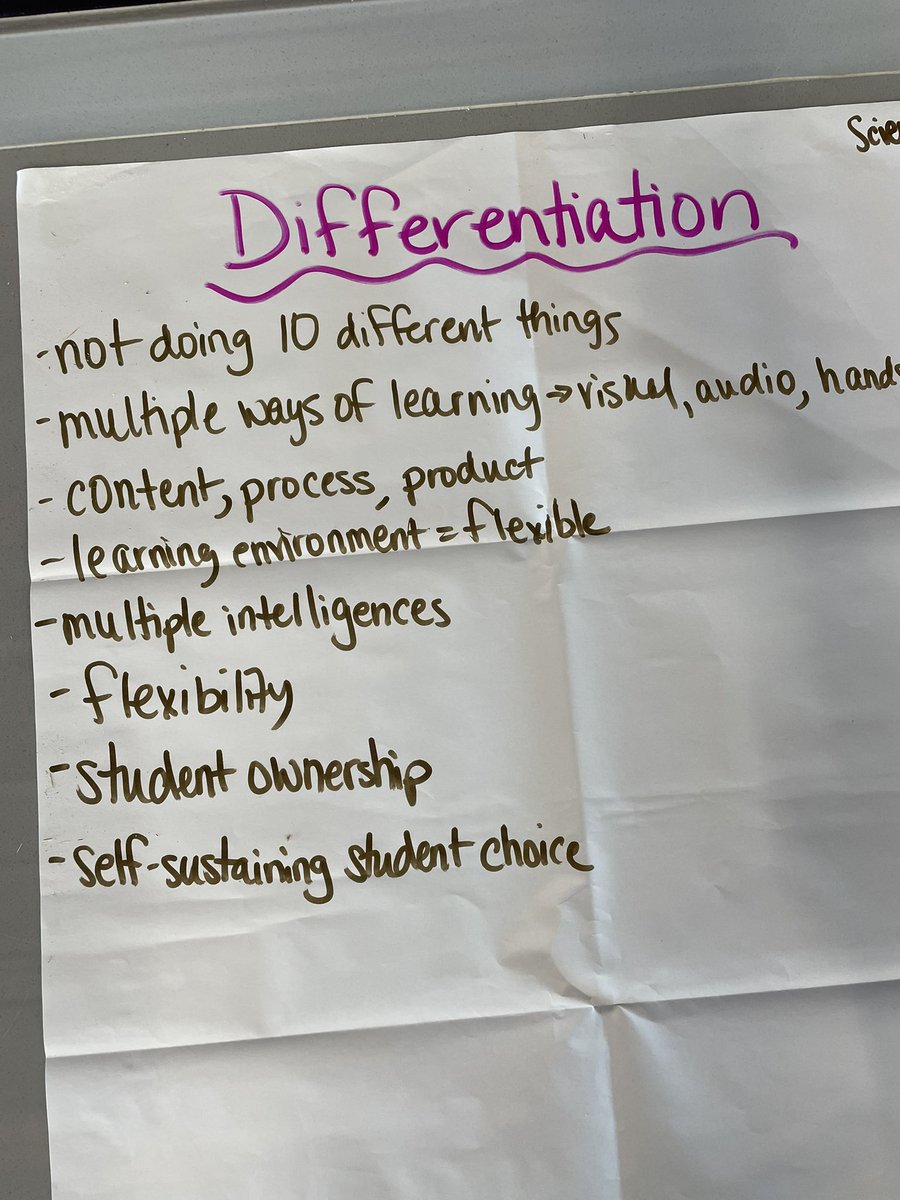 Scien
Differentiation
- not doing 10 different things
- multiple ways of learning → visual, audio, hands-
- content, process, product
- learning environment = flexible
- multiple intelligences
- flexibility
- student ownership
- self-sustaining student choice